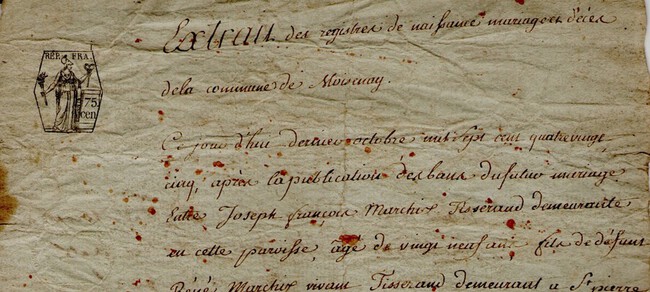 Extrait des registres de naissance mariage et décès
REP. FRA.
75
cen
de la commune de Moisenay.
Ce jour d'hui dernier octobre mil sept cent quatre vingt
cinq, après la publication des bans du futur mariage
Entre Joseph françois Marchix Tisserand demeurante
en cette paroisse, agé de vingt neuf an. fils de défunt
Réné Marchix vivant Tisserand demeurant a St pierre